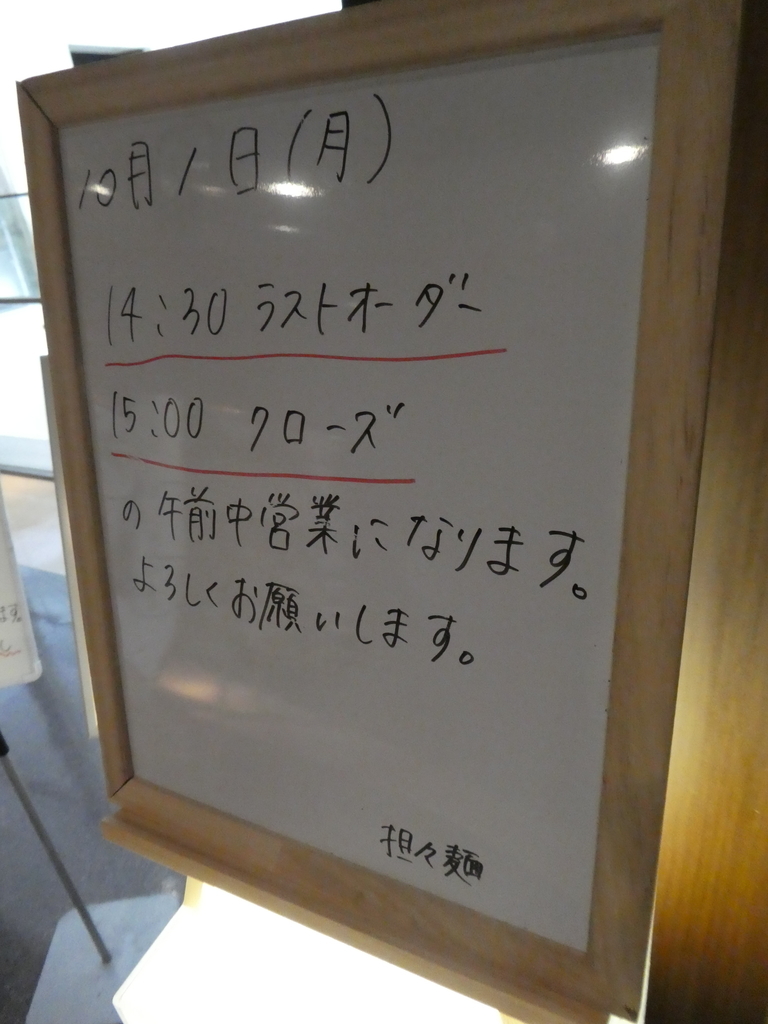 10月1日(月)
14:30 ラストオーダー
15:00 クローズ
の午前中営業になります。
よろしくお願いします。
担々麺
ます。